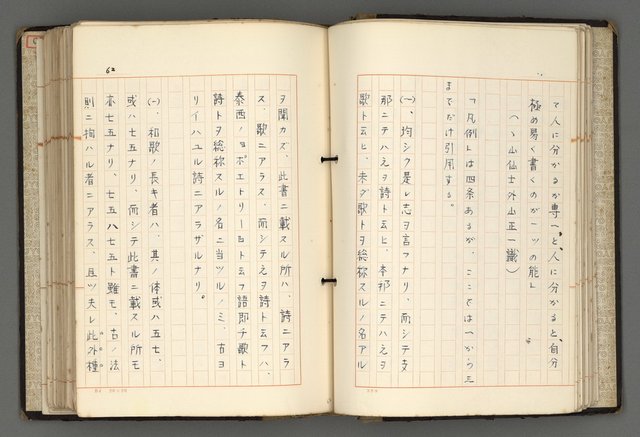 て人に分かるが専一と、人に分かると自分
極め易く書くのが一ツの能」
(ゝ山仙士外山正一識)
「凡例」は四条あるが、ここでは一から三
までだけ引用する。
(一、均シク是レ志ヲ言フナリ、而シテ支
那ニテハ之ヲ詩ト云ヒ、本邦ニテハ之ヲ
歌ト云ヒ、未ダ歌ト詩トヲ総称スルノ名アル
62
ヲ聞カズ、此書ニ載スル所ハ、詩ニアラ
ス、歌ニアラス、而シテ之ヲ詩ト云フハ、
泰西ノヨポエトリーヨト云フ語即チ歌ト
詩トヲ総称スルノ名ニ当ツルノミ、古ヨ
リイハユル詩ニアラザルナリ。
(一、和歌ノ長キ者ハ、其ノ体或ハ五七、
或ハ七五ナリ、而シテ此書ニ載スル所モ
亦七五ナリ、七五ハ七五ト雖モ、古ノ法
則ニ拘ハル者ニアラス、且ツ夫レ此外種